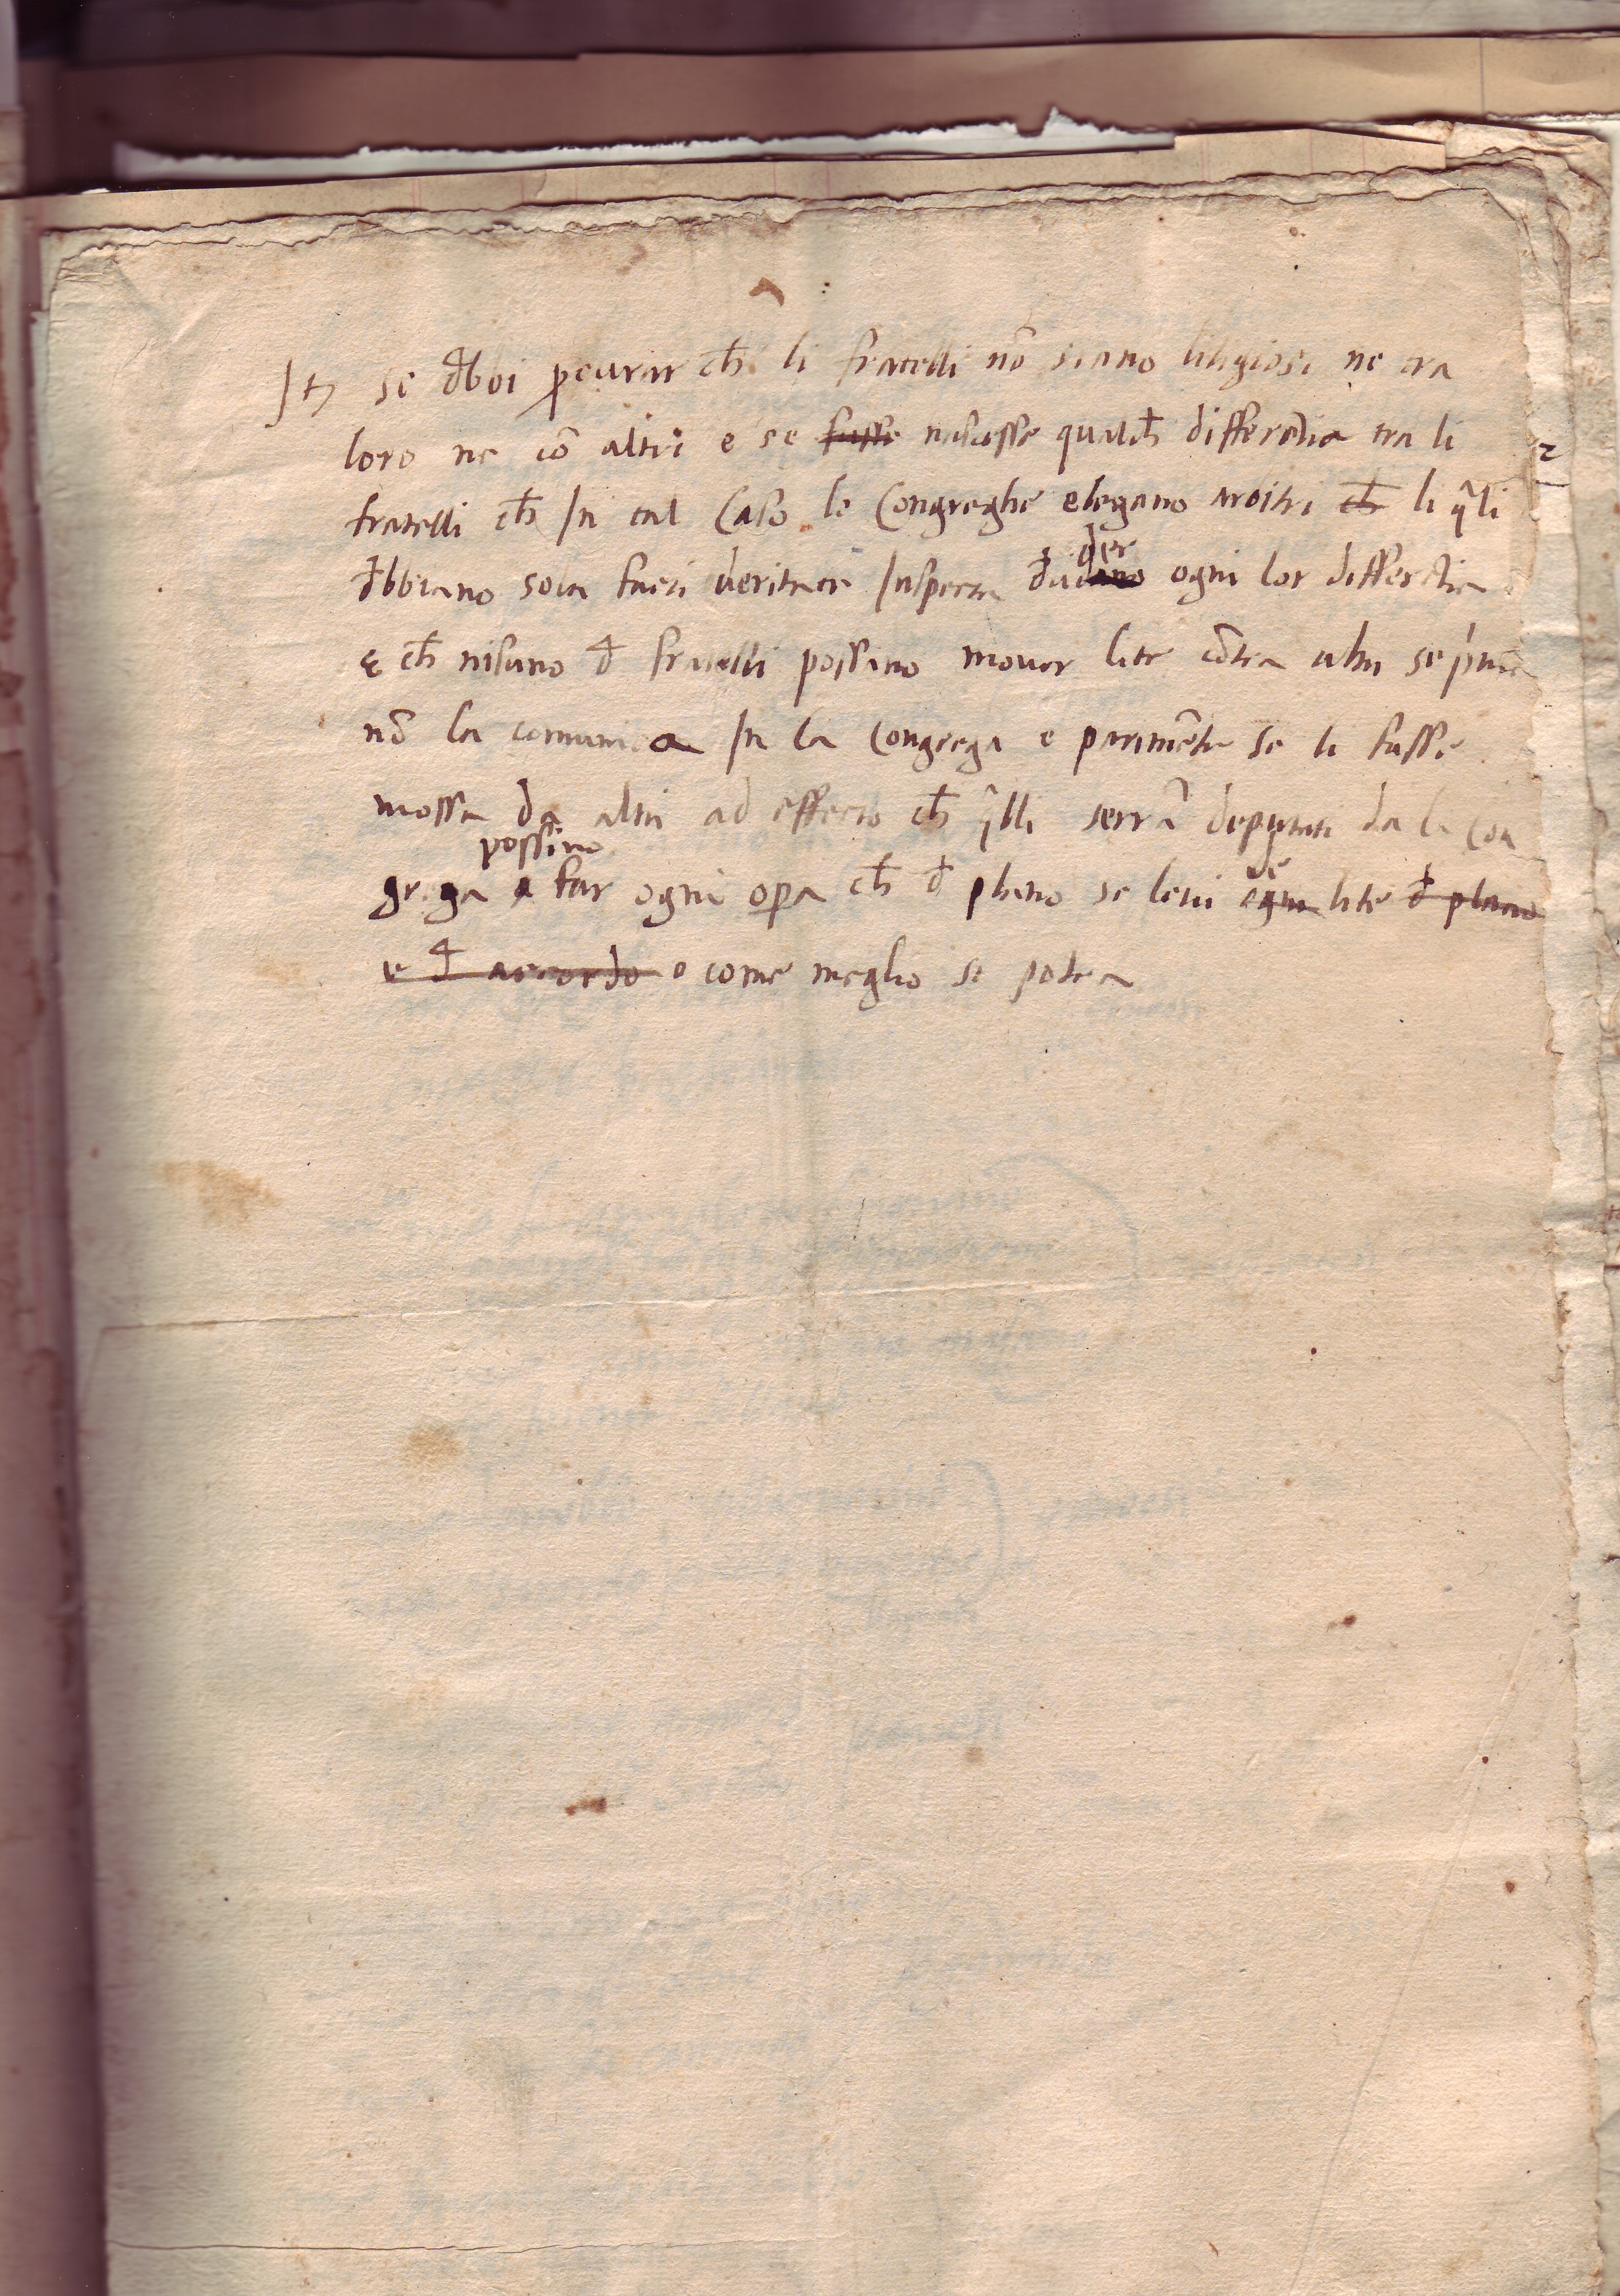 It(em) se d̄boi ꝓcurar ch̄ li fratelli nō siano litigiosi ne tra
loro ne cō altri e se fusse nascesse qualch̄ differētia tra li
fratelli ch̄ In tal Caso le Congreghe elegano arbitri ch̄ li q̄li
d̄bbiano sola facti veritate Inspecta d̄cider ogni lor differētia
e ch̄ nisuno d̄ fratelli possano mover lite cōtra altri se prima
nō la comunica In la Congrega e parimēte se li fusse
mossa da altri ad effecto ch̄ q̄lli serrā deputati da la Con
possino
grega a far ogni oꝑa ch̄ d̄ plano se levi ogni de lite d̄ plano
e d̄ accordo o come meglio se potra